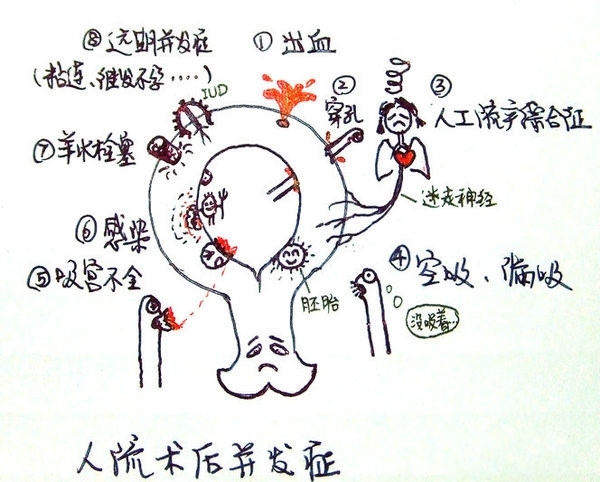 ⑧远期并发症
(粘连、继发不孕····)
① 出血
IUD
② 穿孔
③
人工流产综合征
⑦羊水栓塞
迷走神经
⑥感染
⑤吸宫不全
④空吸、漏吸
胚胎
没吸着…
人流术后并发症